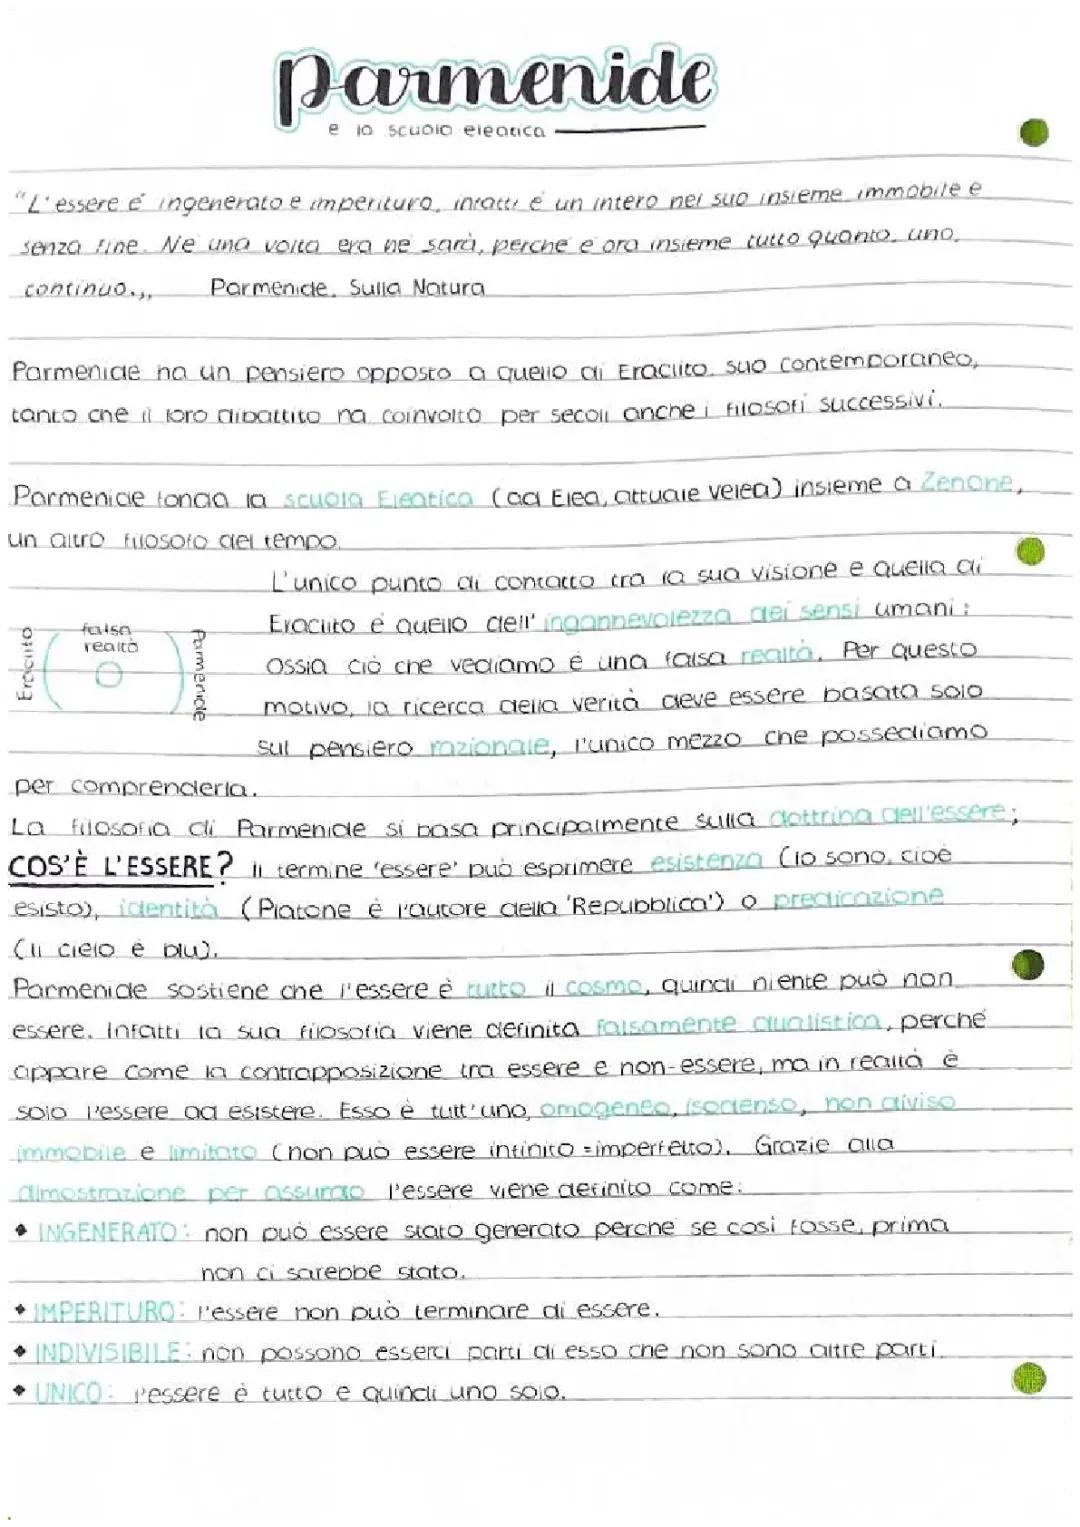 parmenide
e la scuola eleatica
"L'essere é ingenerato e imperituro, infatti é un intero nel suo insieme, immobile e
senza fine. Né una volta era né sarà, perché é ora insieme tutto quanto, uno,
continuo.,, Parmenide, Sulla Natura
Parmenide ha un pensiero opposto a quello di Eraclito, suo contemporaneo,
tanto che il loro dibattito ha coinvolto per secoli anche i filosofi successivi.
Parmenide fonda la scuola Eleatica (ad Elea, attuale Velea) insieme a Zenone,
un altro filosofo del tempo.
L'unico punto di contatto tra la sua visione e quella di
Eraclito é quello dell'ingannevolezza dei sensi umani:
ossia ciò che vediamo é una falsa realtà. Per questo
motivo, la ricerca della verità deve essere basata solo
sul pensiero razionale, l'unico mezzo che possediamo
Eraclito
falsa
realtà
Parmenide
per comprenderla.
La filosofia di Parmenide si basa principalmente sulla dottrina dell'essere;
COS'È L'ESSERE? Il termine 'essere' può esprimere esistenza (Io sono, cioè
esisto), identità (Platone è l'autore della 'Repubblica') o predicazione
(Il cielo è blu).
Parmenide sostiene che l'essere è tutto il cosmo, quindi niente può non
essere. Infatti la sua filosofia viene definita falsamente dualistica, perché
appare come la contrapposizione tra essere e non-essere, ma in realtà è
solo l'essere ad esistere. Esso è tutt'uno, omogeneo, isodenso, non diviso
immobile e limitato (non può essere infinito = imperfetto). Grazie alla
dimostrazione per assurdo l'essere viene definito come:
◆ INGENERATO: non può essere stato generato perché se così fosse, prima
non ci sarebbe stato.
◆ IMPERITURO: l'essere non può terminare di essere.
◆ INDIVISIBILE: non possono esserci parti di esso che non sono altre parti.
◆ UNICO: l'essere è tutto e quindi uno solo.